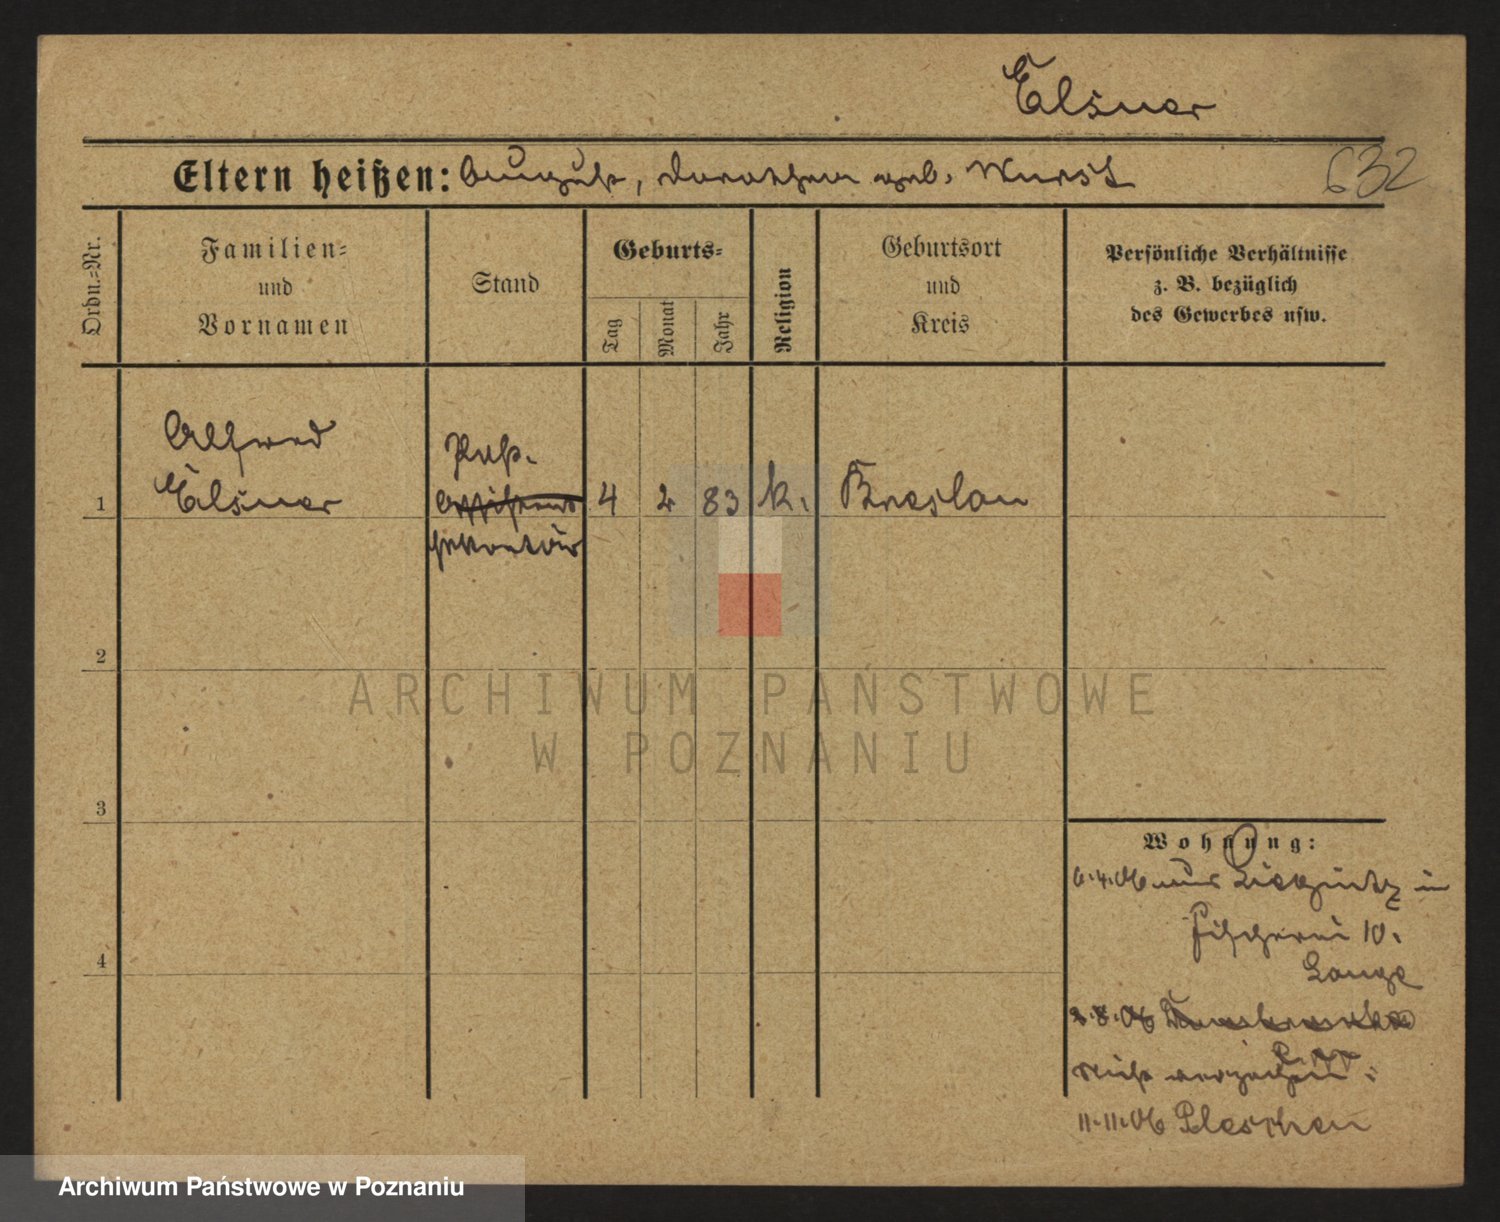 Elsner
Eltern heißen: August, Dorothea geb. Wurst
632
Ordn.-Nr.
Familien-
und
Vornamen
Stand
Geburts-
Tag
Monat
Jahr
Religion
Geburtsort
und
Kreis
Persönliche Verhältnisse
z. B. bezüglich
des Gewerbes usw.
Alfred
Elsner
Post.
Assistent
Sekretär
1
4
2
83
k.
Breslau
2
3
4
Wohnung:
6.4.06 aus Liegnitz in
Fischerei 10.
Lange
2.8.06
nicht verzogen
11.11.06 Pleschen
ARCHIWUM PAŃSTWOWE
W POZNANIU
Archiwum Państwowe w Poznaniu